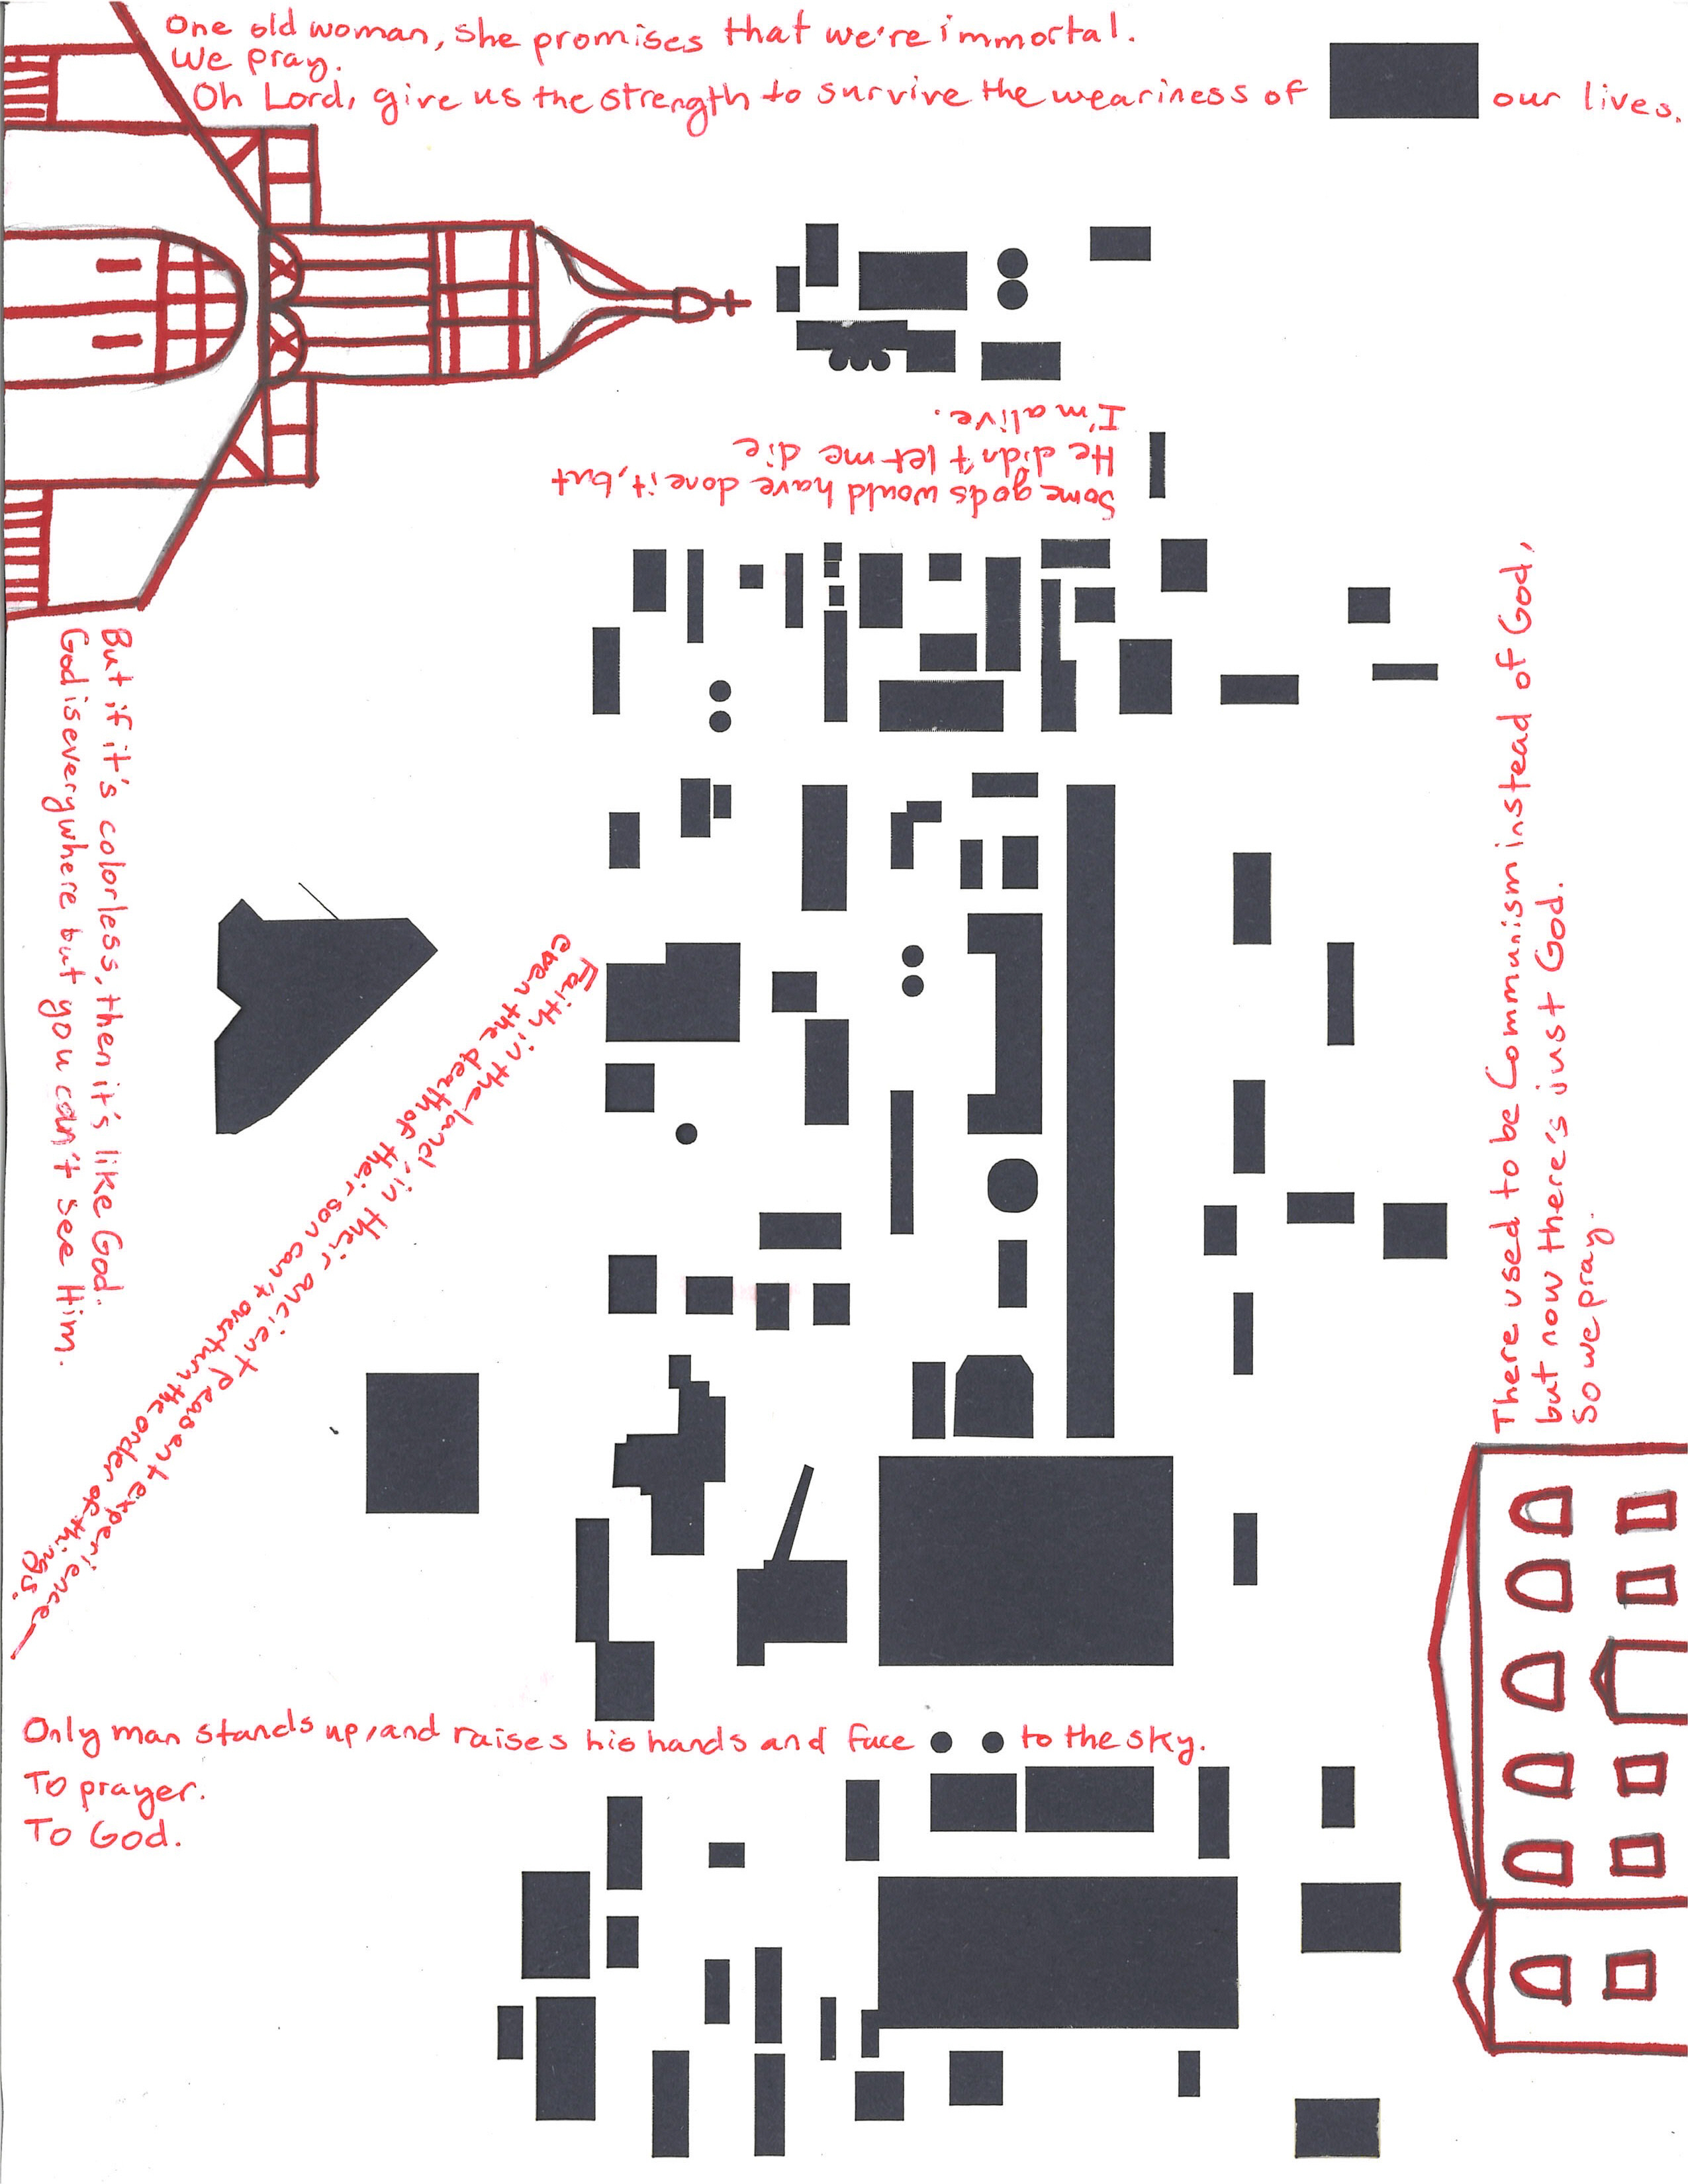 One old woman, she promises that we're immortal.
We pray.
Oh Lord, give us the strength to survive the weariness of our lives.
Some gods would have done it, but
He didn't let me die
I'm alive.
But if it's colorless, then it's like God.
God is everywhere but you can't see Him.
Faith in the land, in their ancient peasent experience—
even the death of their son can't overturn the order of things.
There used to be Communism instead of God,
but now there's just God.
So we pray.
Only man stands up, and raises his hands and face to the sky.
To prayer.
To God.